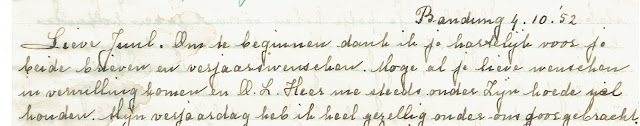 Bandung 4.10.'52
Lieve Juul. Om te beginnen dank ik je hartelijk voor je
beide brieven en verjaarswenschen. Moge al je lieve wenschen
in vervulling komen en O.L. Heer me steeds onder Zijn hoede wil
houden. Mijn verjaardag heb ik heel gezellig onder-ons doorgebracht.